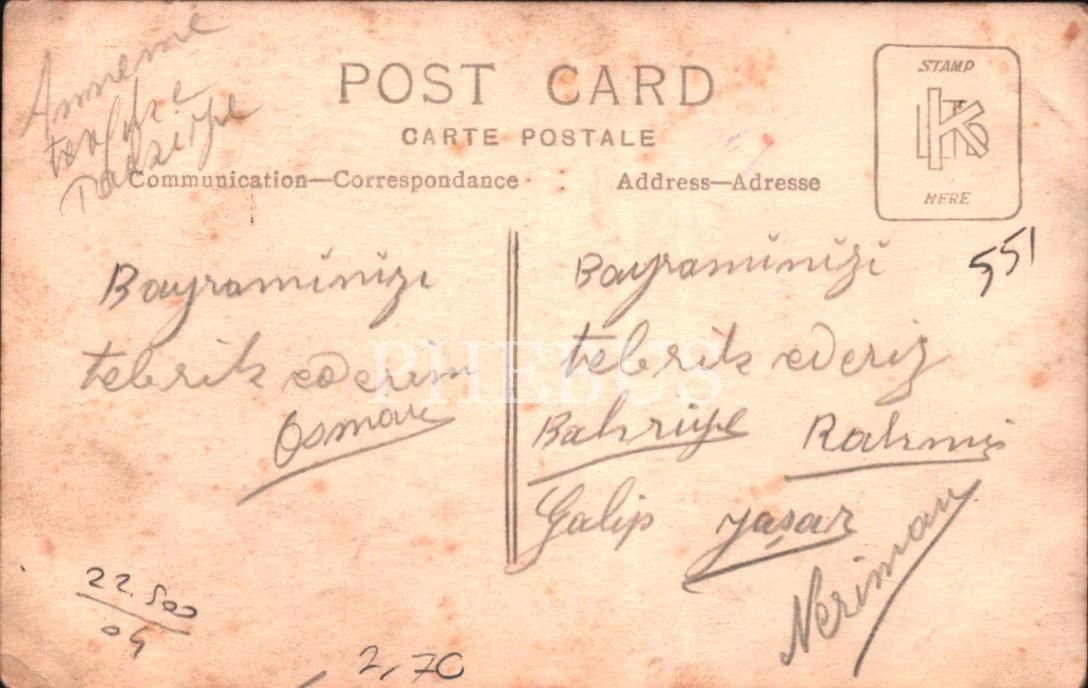 Anneme
POST CARD
CARTE POSTALE
Communication—Correspondance
Address—Adresse
STAMP
HERE
551
Bayraminizi
tebrik ederim
Osman
Bayraminizi
tebrik ederiz
Bahriye Rahmi
Galip yaşar
Neriman
22.500
04
2,70
PHEBUS